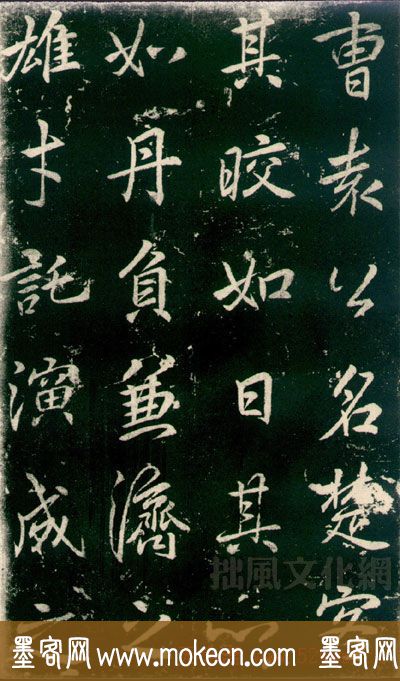 曹袁公名楚客
其皎如日其
如丹負兼濟之
雄才託演威
拙風文化網
墨客网 www.mokecn.com 墨客网